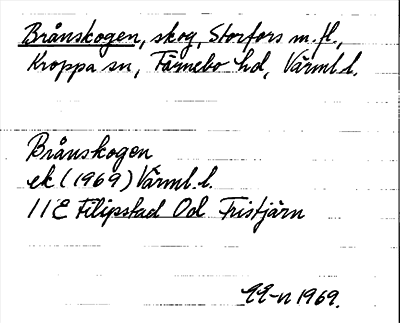 Brånskogen, skog, Storfors m.fl.,
Kroppa sn, Färnebo hd, Värml.l.
Brånskogen
ek (1969) Värml.l.
11E Filipstad Od Tristjärn
1969.